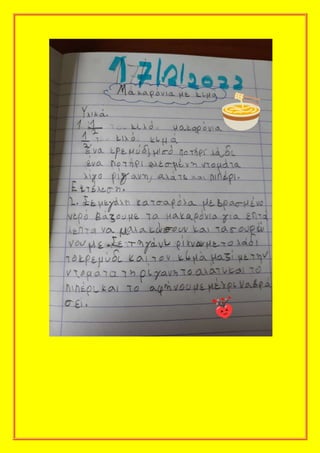 17/2/2022
Μακαρόνια με κιμά
Υλικά.
1 1/2 κιλό μακαρόνια
1/2 κιλό κιμά
ένα κρεμύδι μισό ποτήρι λάδι
ένα ποτήρι λιεσμένη ντομάτα
λίγο ρίγανη, αλάτι και πιπέρι.
Εκτέλεση.
1. Σε μεγάλη κατσαρόλα με βρασμένο
νερό βάζουμε τα μακαρόνια για επτά
λεπτά να μαλακώσουν και τα σουρώ
νουμε. Σε τηγάνι ρίχνωμε το λάδι
το κρεμύδι και τον κιμά μαζί με την
ντομάτα τη ρίγανη το αλάτι και το
πιπέρι και το αφήνουμε μέχρι να βρά
σει.